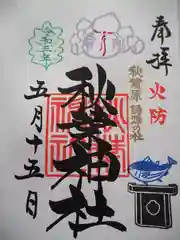 奉拝
火防
秋葉原 鎮座の社
秋葉神社
令和三年
五月十五日